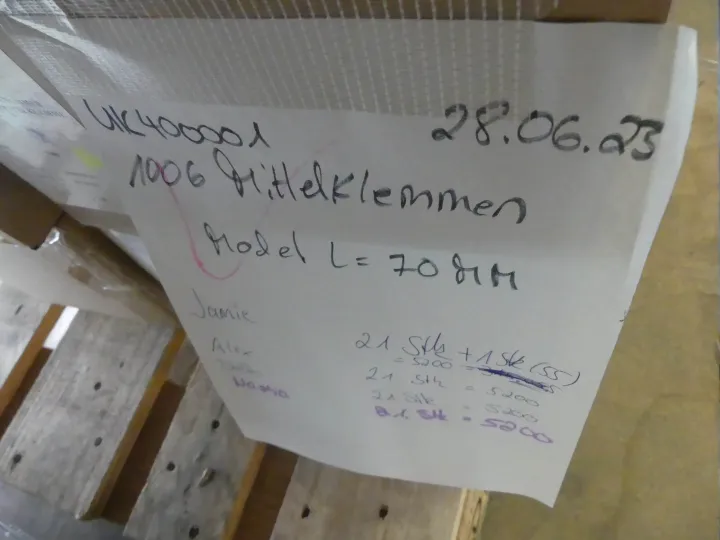 UK400001
28.06.23
1006 Mittelklemmen
Model L = 70 MM
Jamie
21 Stk + 1 Stk (55)
= 5200
21 Stk = 5200
21 Stk = 5200
21 Stk = 5200